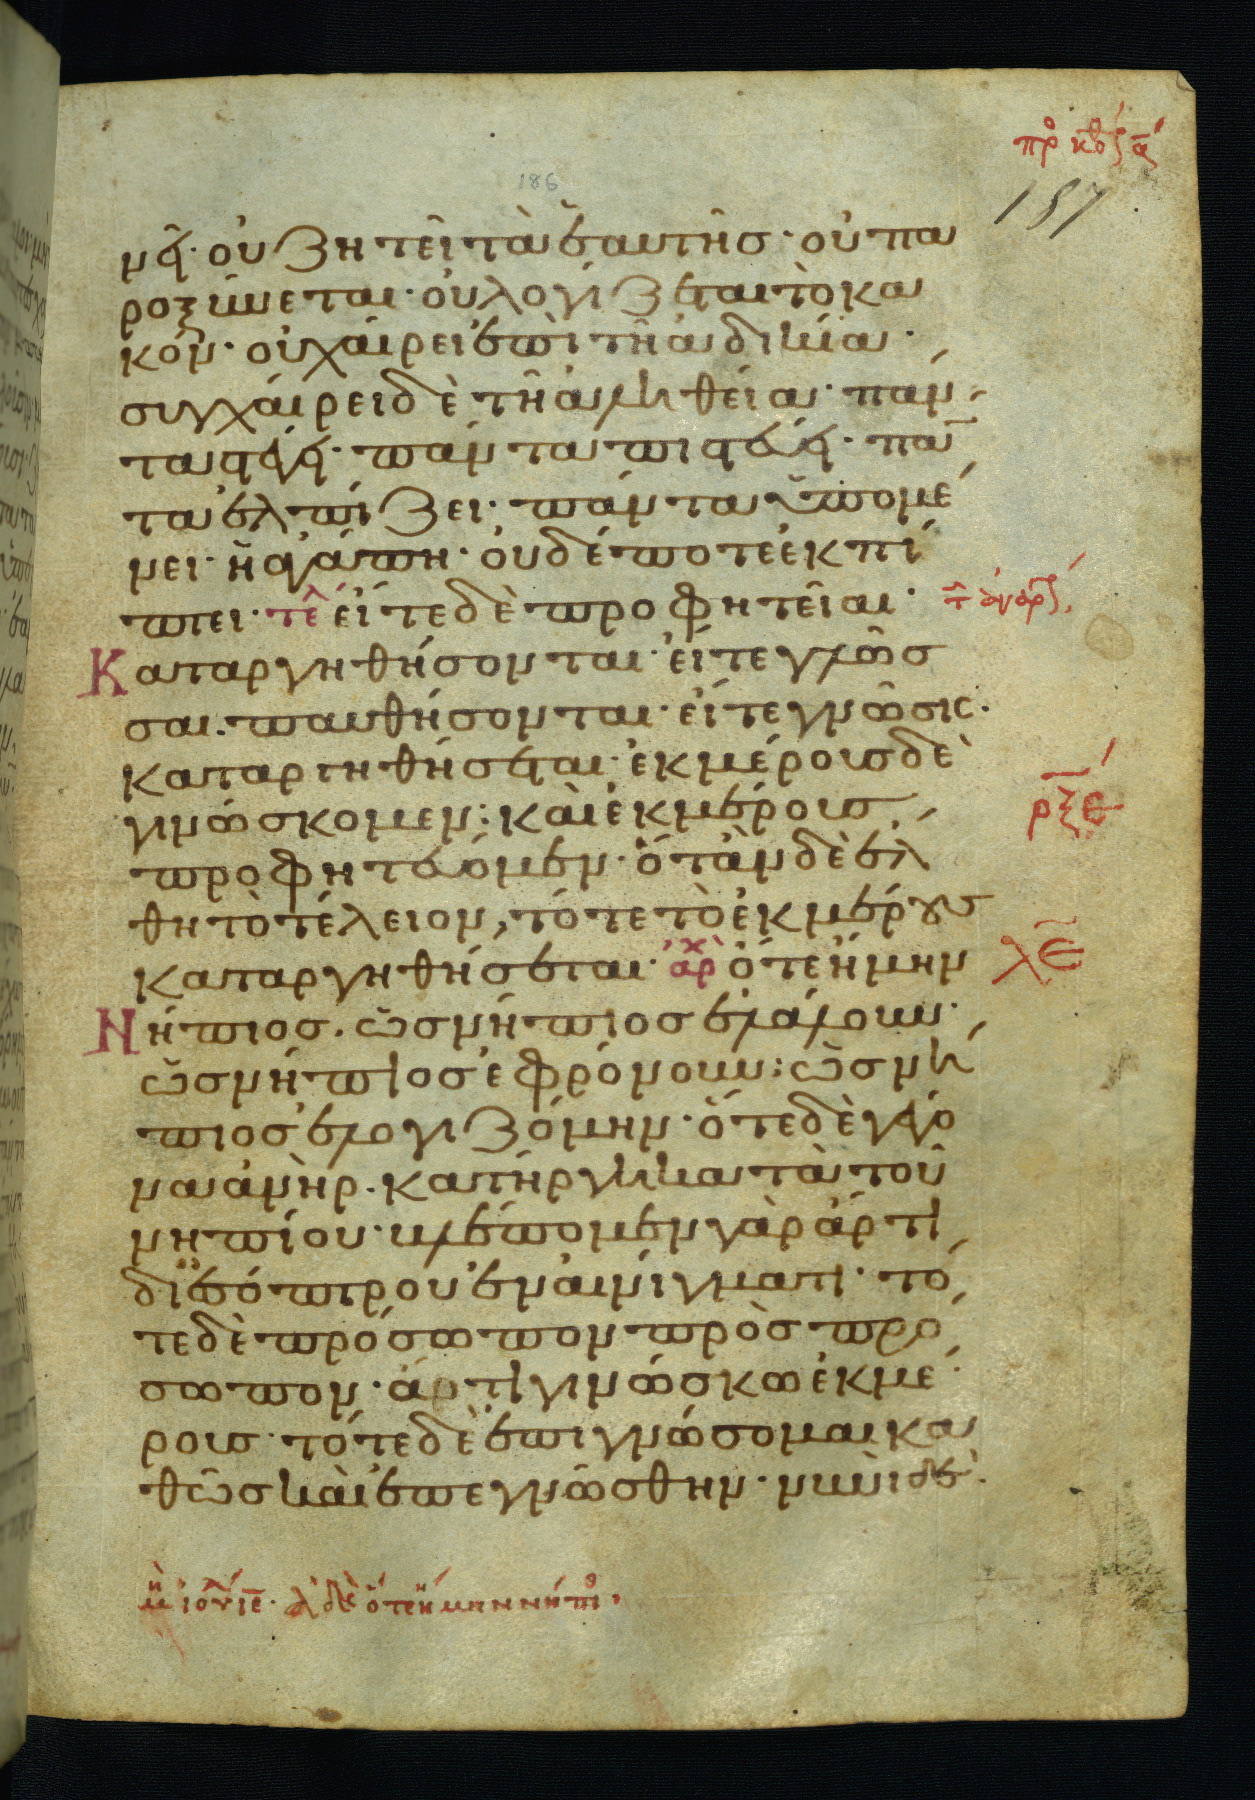 πρ κορ ᾱ
187
186
νεῖ· οὐ ζητεῖ τὰ ἑαυτῆσ· οὐ πα
ροξύνεται· οὐ λογίζεται τὸ κα
κόν· οὐ χαίρει ἐπὶ τῆ ἀδικία·
συγχαίρει δὲ τῆ ἀληθεία· πάν
τα στέγει· πάντα πιστεύει· πᾱ
τα ἐλπίζει· πάντα ὑπομέ
νει· ἡ ἀγάπη· οὐδέποτε ἐκπί
πτει· τε εἴτε δὲ προφητεῖαι·
Καταργηθήσονται· εἴτε γλῶσ
σαι. παυθήσονται· εἴτε γνῶσις·
καταργηθήσεται· ἐκ μέρουσ δὲ
γινώσκομεν· καὶ ἐκ μέρουσ
προφητεύομεν· ὅτὰν δὲ ἔλ
θη τὸ τέλειον, τότε τὸ ἐκ μέρουσ
καταργηθήσεται· ἀρχ ὅτε ἤμην
Νήπιοσ. ὡσ νήπιοσ ἐλάλουν·
ὡσ νήπιοσ ἐφρόνουν· ὡσ νή
πιοσ ἐλογιζόμην· ὅτε δὲ γέγο
να ἀνὴρ. κατήργηκα τὰ τοῦ
νηπίου· βλέπομεν γὰρ ἄρτι
δι ἐσόπτρου ἐν αἰνίγματι· τό
τε δὲ πρόσωπον πρὸσ πρό
σωπον· ἄρτι γινώσκω ἐκ μέ
ρουσ· τότε δὲ ἐπιγνώσομαι κα
θὼσ καὶ ἐπεγνώσθην· νυνὶ δὲ
ρξε
μη ἰουν ιε· ἀδε ὅτε ἤμην νήπι